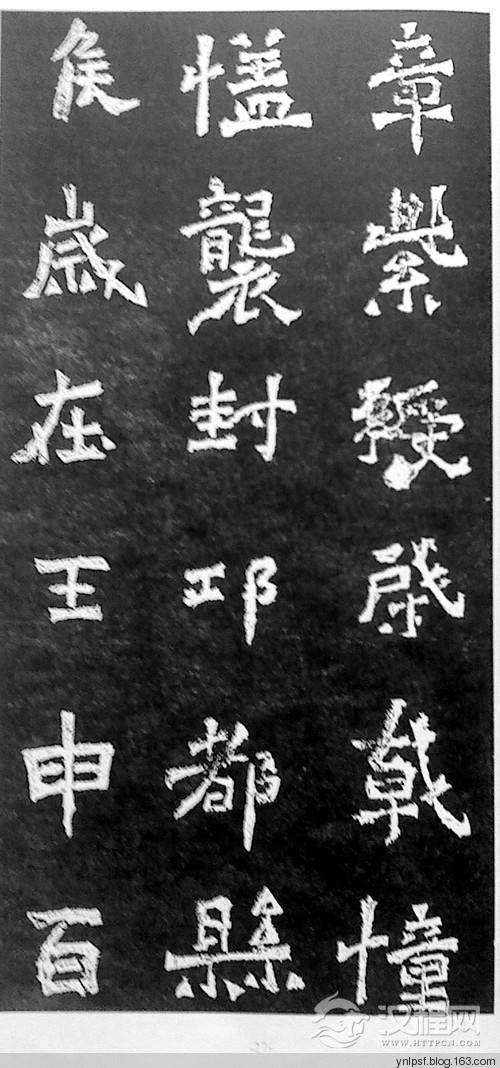 章紫綬棨戟幢
幰襲封邛都縣
侯歲在壬申百
汉程网
WWW.HTTPCN.COM
ynlpsf.blog.163.com